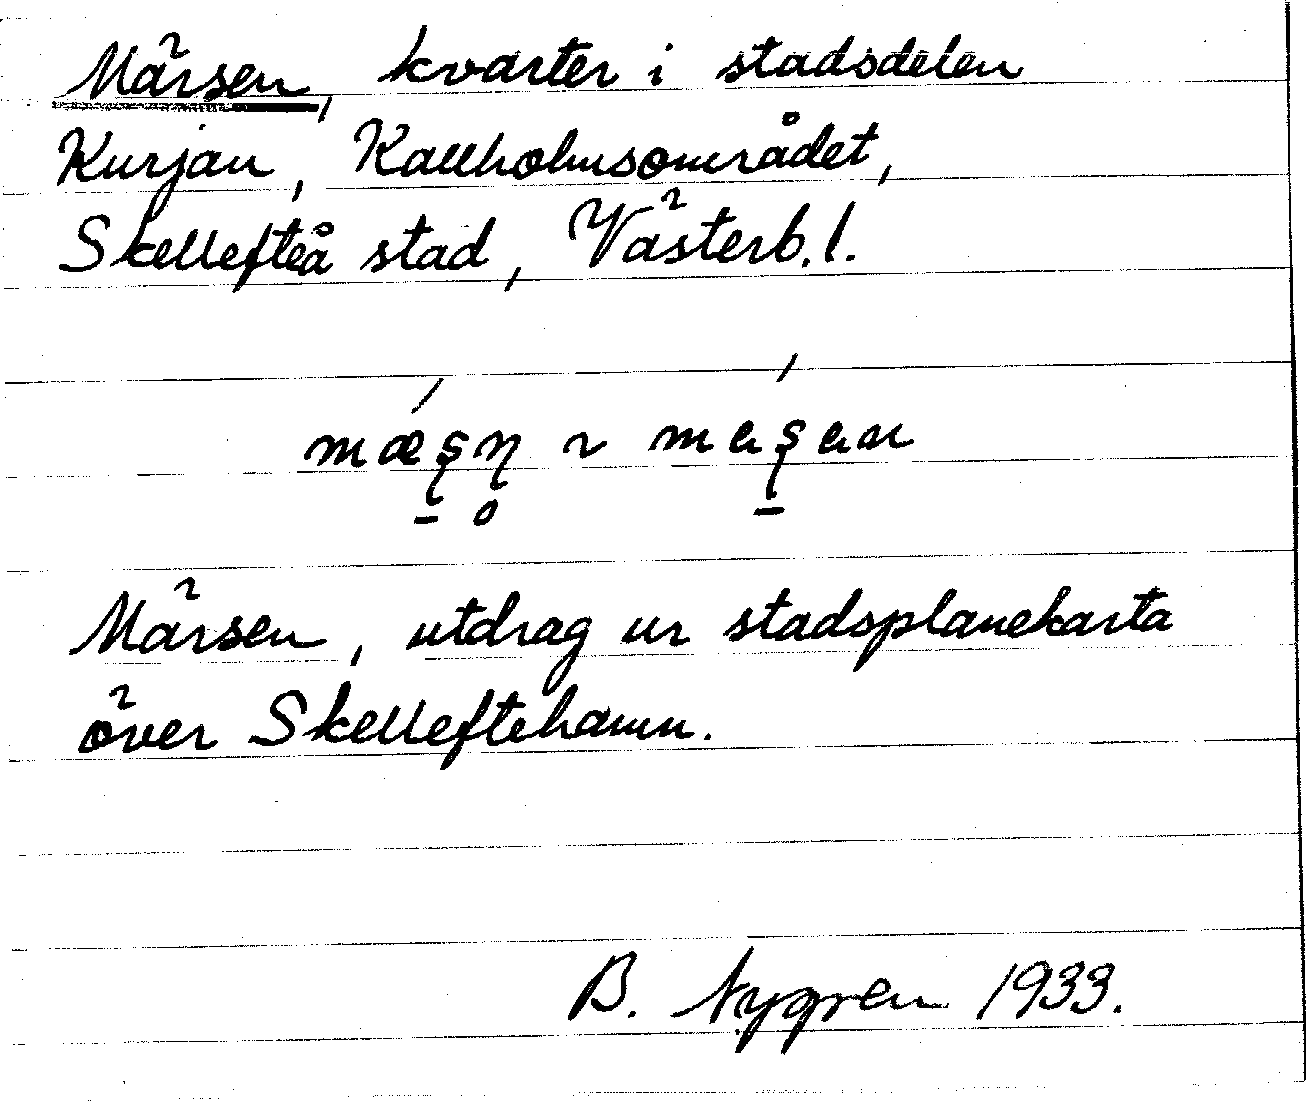 Märsen, kvarter i stadsdelen
Kurjan, Kallholmsområdet,
Skellefteå stad, Västerb. l.
Märsen, utdrag ur stadsplanekarta
över Skelleftehamn.
B. Nygren 1933.